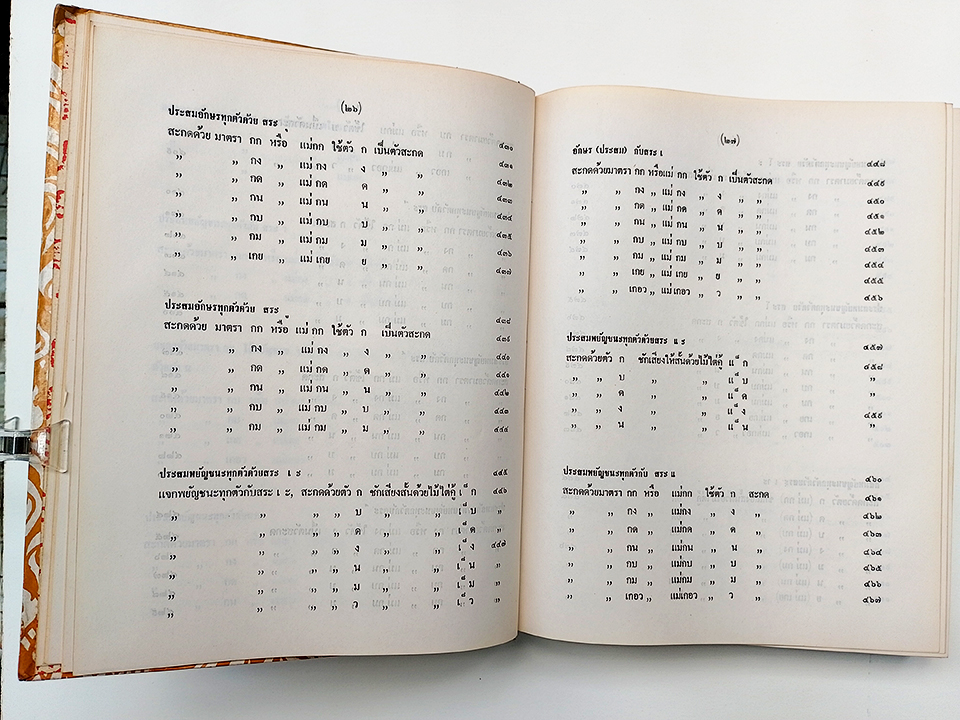 (๒๖)
ประสมอักษรทุกตัวด้วย สระ ั
สะกดด้วย มาตรา กก หรือ แม่กก ใช้ตัว ก เป็นตัวสะกด ๔๓๐
,, ,, กง ,, แม่ กง ,, ง ,, ,, ๔๓๑
,, ,, กด ,, แม่ กด ,, ด ,, ,, ๔๓๒
,, ,, กน ,, แม่ กน ,, น ,, ,, ๔๓๓
,, ,, กบ ,, แม่ กบ ,, บ ,, ,, ๔๓๔
,, ,, กม ,, แม่ กม ,, ม ,, ,, ๔๓๕
,, ,, เกย ,, แม่ เกย ,, ย ,, ,, ๔๓๖
๔๓๗
ประสมอักษรทุกตัวด้วย สระ
สะกดด้วย มาตรา กก หรือ แม่ กก ใช้ตัว ก เป็นตัวสะกด ๔๓๘
,, ,, กง ,, แม่ กง ,, ง ,, ,, ๔๓๙
,, ,, กด ,, แม่ กด ,, ด ,, ,, ๔๔๐
,, ,, กน ,, แม่ กน ,, น ,, ,, ๔๔๑
,, ,, กบ ,, แม่ กบ ,, บ ,, ,, ๔๔๒
,, ,, กม ,, แม่ กม ,, ม ,, ,, ๔๔๔
๔๔๕
ประสมพยัญชนะทุกตัวด้วยสระ เ ะ ๔๔๕
แจกพยัญชนะทุกตัวกับสระ เ ะ, สะกดด้วยตัว ก ชักเสียงสั้นด้วยไม้ไต่คู้ เ ็ ก ๔๔๖
,, ,, ,, ,, บ ,, ,, เ ็ บ ,,
,, ,, ,, ,, ด ,, ,, เ ็ ด ,,
,, ,, ,, ,, ง ,, ,, เ ็ ง ๔๔๗
,, ,, ,, ,, น ,, ,, เ ็ น ,,
,, ,, ,, ,, ม ,, ,, เ ็ ม ,,
,, ,, ,, ,, ว ,, ,, เ ็ ว ,,
(๒๗)
อักษร (ประสม) กับสระ เ ๔๔๘
สะกดด้วยมาตรา กก หรือแม่ กก ใช้ตัว ก เป็นตัวสะกด ๔๔๙
,, ,, กง ,, แม่ กง ,, ง ,, ,, ๔๕๐
,, ,, กด ,, แม่ กด ,, ด ,, ,, ๔๕๑
,, ,, กน ,, แม่ กน ,, น ,, ,, ๔๕๒
,, ,, กบ ,, แม่ กบ ,, บ ,, ,, ๔๕๓
,, ,, กม ,, แม่ กม ,, ม ,, ,, ๔๕๔
,, ,, เกย ,, แม่ เกย ,, ย ,, ,, ๔๕๕
,, ,, เกอว ,, แม่ เกอว ,, ว ,, ,, ๔๕๖
ประสมพยัญชนะทุกตัวด้วยสระ แ ะ ๔๕๗
สะกดด้วยตัว ก ชักเสียงให้สั้นด้วยไม้ไต่คู้ แ ็ ก ๔๕๘
,, ,, บ ,, ,, แ ็ บ ,,
,, ,, ด ,, ,, แ ็ ด ,,
,, ,, ง ,, ,, แ ็ ง ๔๕๙
,, ,, น ,, ,, แ ็ น ,,
ประสมพยัญชนะทุกตัวกับ สระ แ ๔๖๐
สะกดด้วยมาตรา กก หรือ แม่กก ใช้ตัว ก สะกด ๔๖๑
,, ,, กง ,, แม่กง ,, ง ,, ๔๖๒
,, ,, กด ,, แม่กด ,, ด ,, ๔๖๓
,, ,, กน ,, แม่กน ,, น ,, ๔๖๔
,, ,, กบ ,, แม่กบ ,, บ ,, ๔๖๕
,, ,, กม ,, แม่กม ,, ม ,, ๔๖๖
,, ,, เกอว ,, แม่เกอว ,, ว ,, ๔๖๗